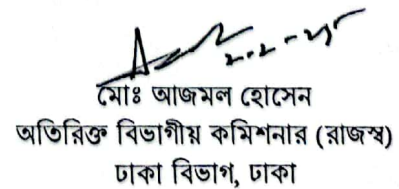 ২-২-২৫
মোঃ আজমল হোসেন
অতিরিক্ত বিভাগীয় কমিশনার (রাজস্ব)
ঢাকা বিভাগ, ঢাকা